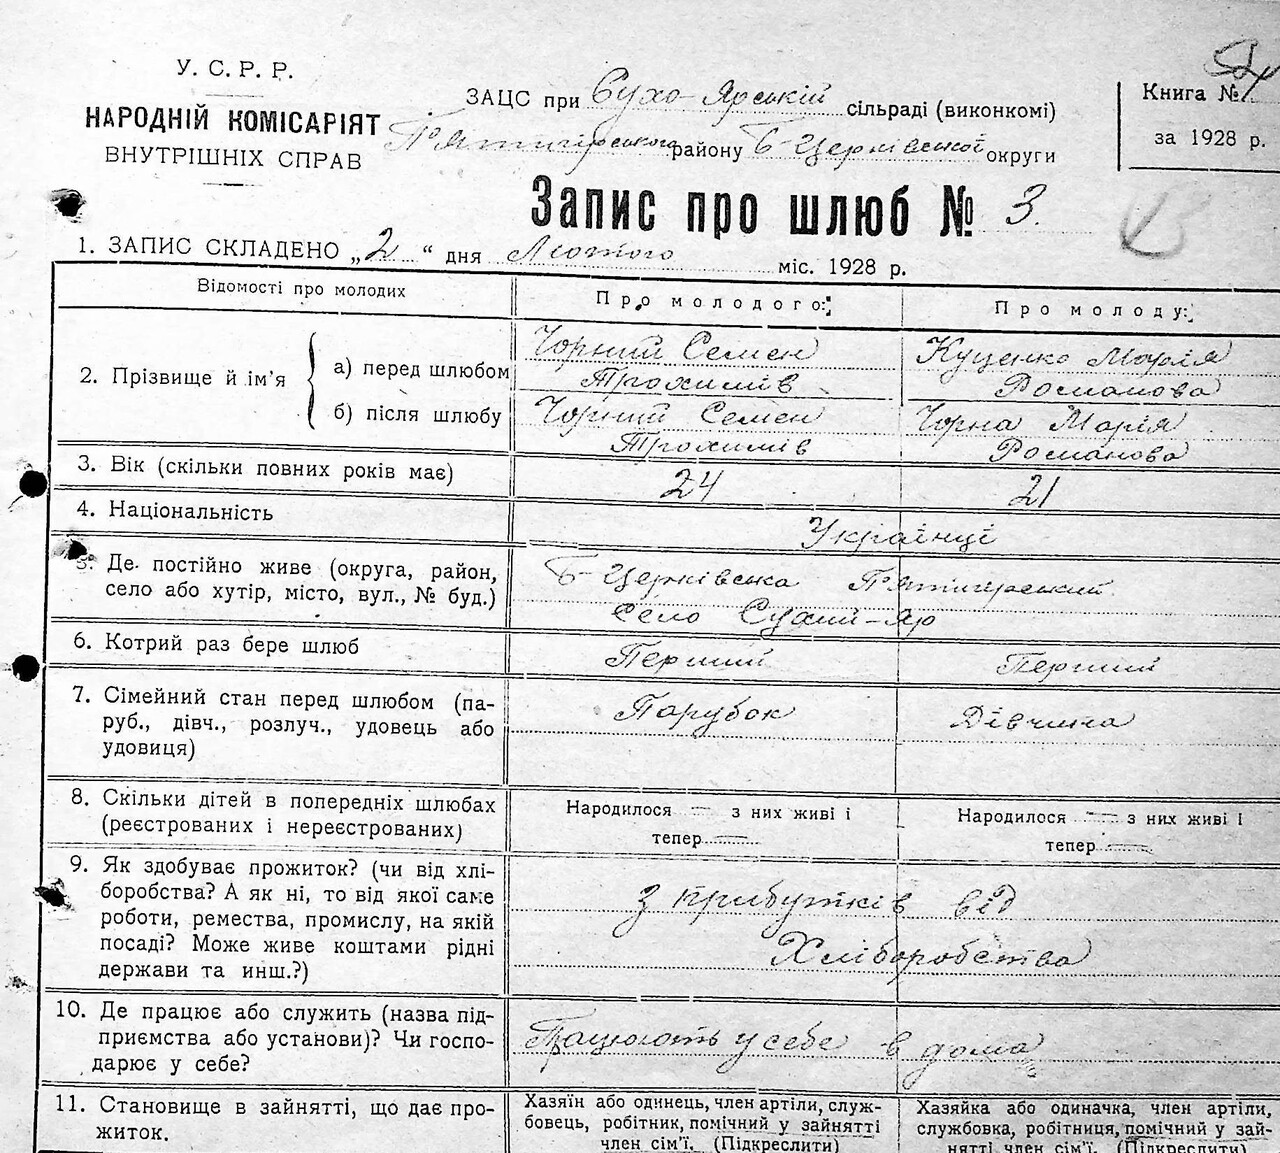 У. С. Р. Р.
НАРОДНІЙ КОМІСАРІЯТ
ВНУТРІШНІХ СПРАВ
ЗАЦС при Сухо-Ярській сільраді (виконкомі)
П'ятигірського району Б-Церківської округи
Книга №
за 1928 р.
Запис про шлюб № 3.
1. ЗАПИС СКЛАДЕНО „2" дня Лютого міс. 1928 р.
Відомості про молодих
Про молодого:
Про молоду:
2. Прізвище й ім'я
а) перед шлюбом
Чорний Семен
Трохимів
Куценко Марія
Романова
б) після шлюбу
Чорний Семен
Трохимів
Чорна Марія
Романова
3. Вік (скільки повних років має)
24
21
4. Національність
Українці
5. Де постійно живе (округа, район,
село або хутір, місто, вул., № буд.)
Б-Церківська П'ятигірський
Село Сухий-Яр
6. Котрий раз бере шлюб
Перший
Перший
7. Сімейний стан перед шлюбом (па-
руб., дівч., розлуч., удовець або
удовиця)
Парубок
Дівчина
8. Скільки дітей в попередніх шлюбах
(реєстрованих і нереєстрованих)
Народилося — з них живі і
тепер —
Народилося — з них живі і
тепер —
9. Як здобуває прожиток? (чи від хлі-
боробства? А як ні, то від якої саме
роботи, ремества, промислу, на якій
посаді? Може живе коштами рідні
держави та инш.?)
З прибутків від
Хліборобства
10. Де працює або служить (назва під-
приємства або установи)? Чи госпо-
дарює у себе?
Працюють у себе в дома
11. Становище в зайнятті, що дає про-
житок.
Хазяїн або одинець, член артіли, служ-
бовець, робітник, помічний у зайнятті
член сім'ї. (Підкреслити)
Хазяйка або одиначка, член артіли,
службовка, робітниця, помічний у зай-
нятті член сім'ї. (Підкреслити)